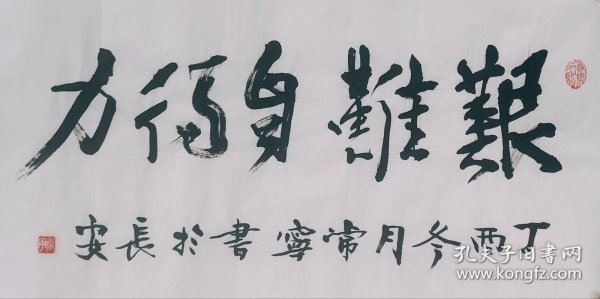 艱難自得力
丁酉冬月常寧書於長安
孔夫子旧书网
www.kongfz.com